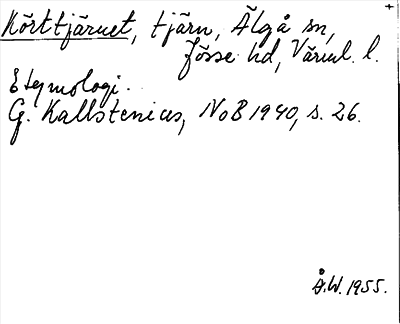 Körttjärnet, tjärn, Älgå sn,
Jösse hd, Värml. l.
Etymologi.
G. Kallstenius, NoB 1940, s. 26.
Å.W. 1955.